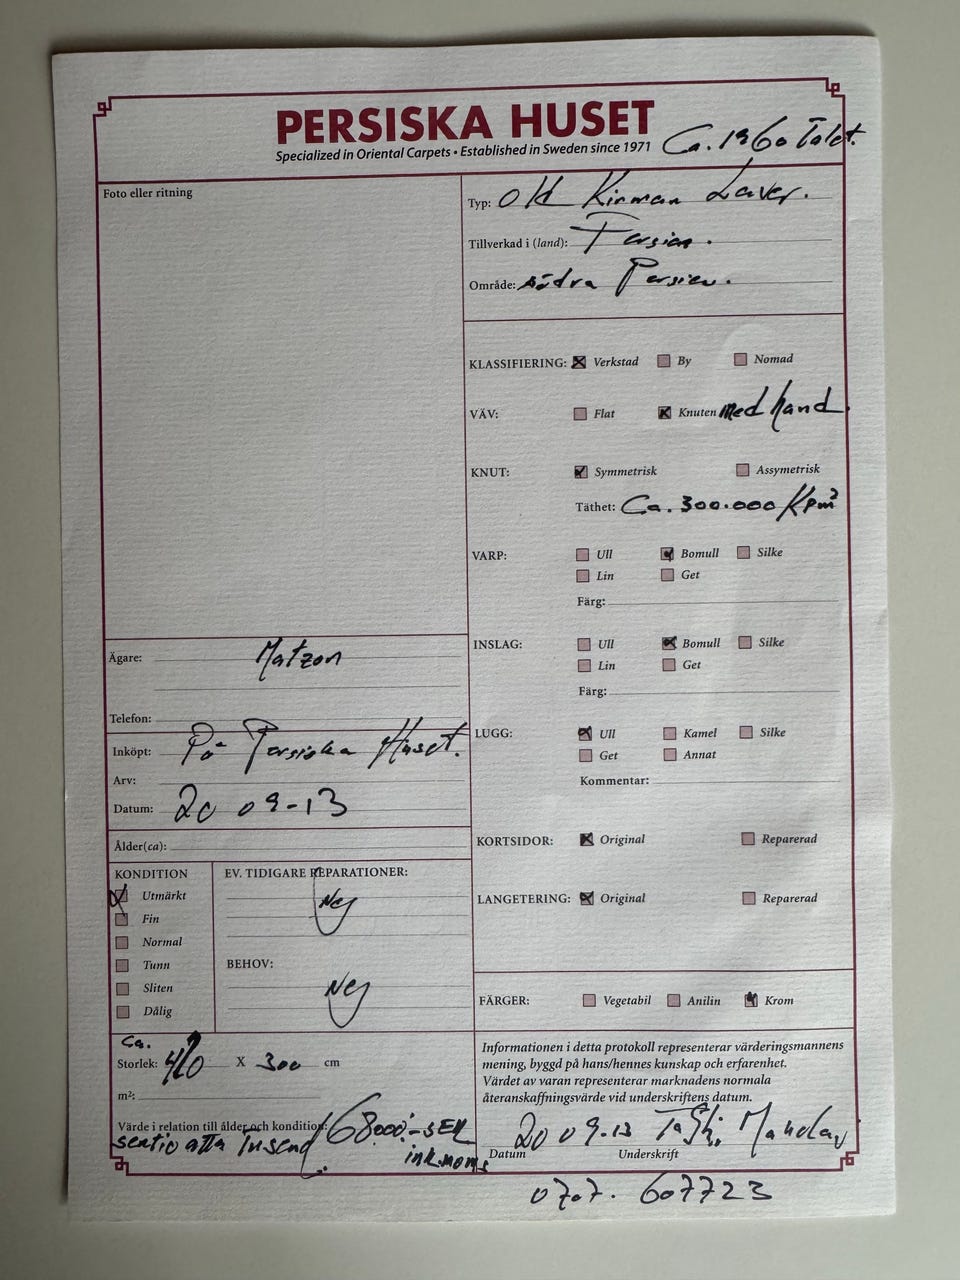 PERSISKA HUSET
Specialized in Oriental Carpets • Established in Sweden since 1971
Ca. 1960 Talet.
Foto eller ritning
Typ: Old Kirman Laver.
Tillverkad i (land): Persien.
Område: södra Persien.
KLASSIFIERING: Verkstad By Nomad
VÄV: Flat Knuten med hand.
KNUT: Symmetrisk Assymetrisk
Täthet: Ca. 300.000 Kpm²
VARP: Ull Bomull Silke
Lin Get
Färg:
INSLAG: Ull Bomull Silke
Lin Get
Färg:
LUGG: Ull Kamel Silke
Get Annat
Kommentar:
KORTSIDOR: Original Reparerad
LANGETERING: Original Reparerad
FÄRGER: Vegetabil Anilin Krom
Ägare: Matzon
Telefon:
Inköpt: På Persiska Huset.
Arv:
Datum: 20 09-13
Ålder(ca):
KONDITION
Utmärkt
Fin
Normal
Tunn
Sliten
Dålig
EV. TIDIGARE REPARATIONER:
Nej
BEHOV:
Nej
Ca.
Storlek: 420 X 300 cm
m²:
Värde i relation till ålder och kondition: 68000:- SEK
sextio åtta Tusend. ink.moms
Informationen i detta protokoll representerar värderingsmannens
mening, byggd på hans/hennes kunskap och erfarenhet.
Värdet av varan representerar marknadens normala
återanskaffningsvärde vid underskriftens datum.
20 09.13
Datum Underskrift
0707. 607723